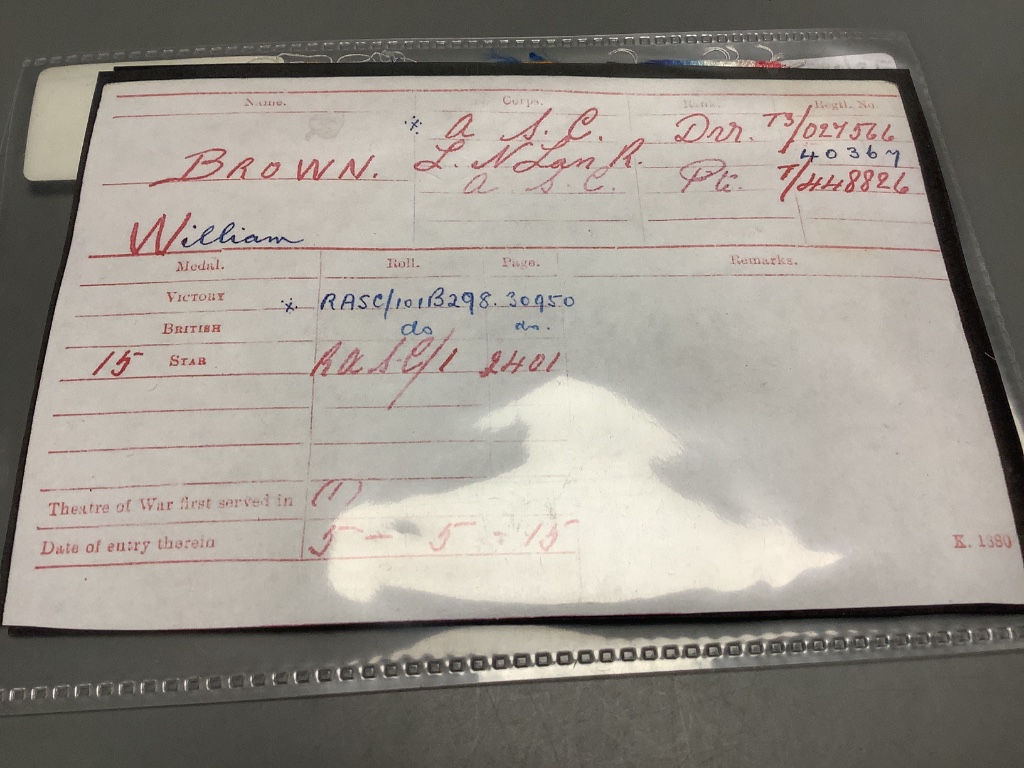 Name. Corps. Rank. Regtl. No.
A. S. C. Dvr. T3/027566
BROWN. L. N Lan R. 40367
A. S. C. Pte. T/448826
William
Medal. Roll. Page. Remarks.
VICTORY RASC/101B298. 30950
BRITISH do do.
15 STAR RASC/1 2401
Theatre of War first served in (1)
Date of entry therein 5 - 5 - 15
K. 1380